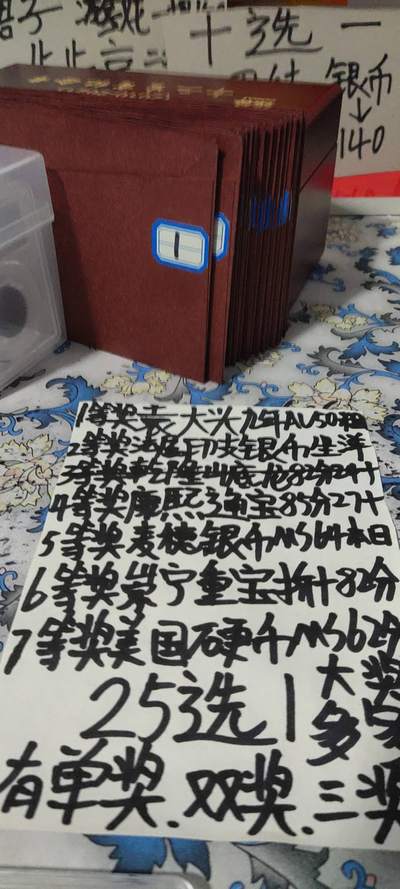 游戏
十选一
北京
银币
↓
140
1
1等奖袁大头九年AU50
2等奖 银币坐洋
3等奖乾隆 82分24十
4等奖康熙通宝85分27十
5等奖麦穗银币MS64本日
6等奖崇宁重宝折十82分
7等奖美国硬币MS62分
25选1
大奖
多
有单奖.双奖.三奖